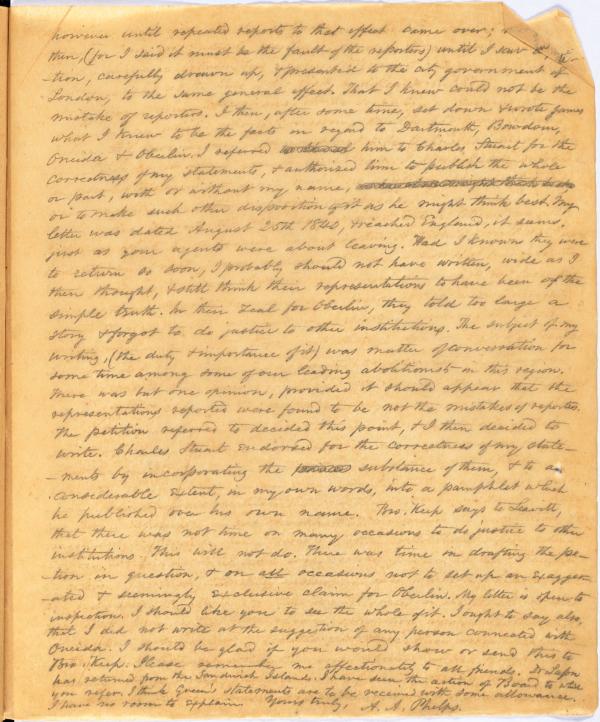 however until repeated reports to that effect came over;
then, (for I said it must be the fault of the reporters) until I saw a
-tion, carefully drawn up, & presented to the city government of
London, to the same general effect. That I knew could not be the
mistake of reporters. I then, after some time, set down & wrote James
what I knew to be the facts in regard to Dartmouth, Bowdoin,
Oneida & Oberlin. I referred him to Charles Stuart for the
correctness of my statements, & authorised him to publish the whole
or part, with or without my name,
or to make such other disposition of it as he might think best. My
letter was dated August 25th 1840, & reached England, it seems,
just as your agents were about leaving. Had I known they were
to return so soon, I probably should not have written, wide as I
then thought, & still think their representations to have been of the
simple truth. In their zeal for Oberlin, they told too large a
story & forgot to do justice to other institutions. The subject of my
writing, (the duty & importance of it) was matter of conversation for
some time among some of our leading abolitionists in this region.
There was but one opinion, provided it should appear that the
representations reported were found to be not the mistakes of reporters.
The petition referred to decided this point, & I then decided to
write. Charles Stuart endorsed for the correctness of my state-
-ments by incorporating the substance of them, & to a
considerable extent, in my own words, into a pamphlet which
he published over his own name. Bro. Keep says to Leavitt,
that there was not time on many occasions to do justice to other
institutions. This will not do. There was time on drafting the pe-
-tion in question, & on all occasions not to set up an exagger-
-ated & seemingly exclusive claim for Oberlin. My letter is open to
inspection. I should like you to see the whole of it. I ought to say also,
that I did not write at the suggestion of any person connected with
Oneida. I should be glad if you would show or send this to
Bro. Keep. Please remember me affectionately to all friends. Dr Lafon
has returned from the Sandwich Islands. I have seen the action of Board to which
you refer. I think Green's statements are to be received with some allowance.
I have no room to explain. Yours truly, A. A. Phelps.